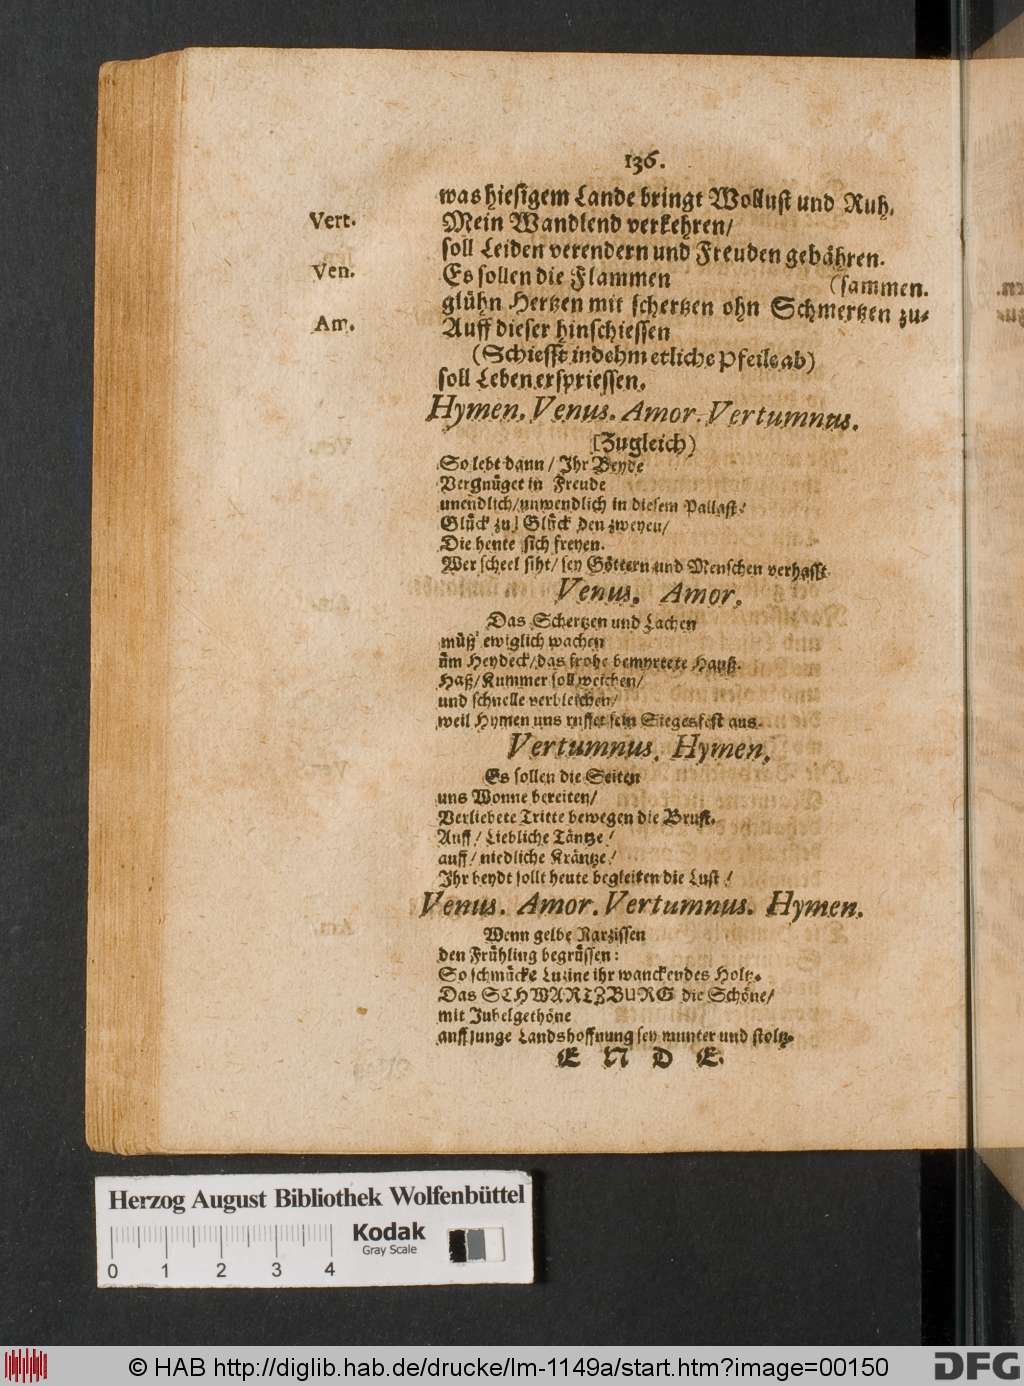 136.
was hiesigem Lande bringt Wollust und Ruh.
Vert. Mein Wandlend verkehren/
soll Leiden verendern und Freuden gebähren.
Ven. Es sollen die Flammen (sammen.
glühn Hertzen mit schertzen ohn Schmertzen zu-
Am. Auff dieser hinschiessen
(Schiesst indehm etliche Pfeile ab)
soll Leben erspriessen.
Hymen. Venus. Amor. Vertumnus.
(Zugleich)
So lebt dann/ Ihr Beyde
Vergnüget in Freude
unendlich/ unwendlich in diesem Pallast!
Glück zu! Glück den zweyen/
Die heute sich freyen.
Wer scheel siht/ sey Göttern und Menschen verhasst.
Venus. Amor.
Das Schertzen und Lachen
müß' ewiglich wachen
üm Heydeck/ das frohe bemyrtete Hauß.
Haß/ Kummer soll weichen/
und schnelle verbleichen/
weil Hymen uns ruffet sein Siegesfest aus.
Vertumnus. Hymen.
Es sollen die Seiten
uns Wonne bereiten/
Verliebete Tritte bewegen die Brust.
Auff! Liebliche Täntze!
auff! niedliche Kräntze!
Ihr beydt sollt heute begleiten die Lust!
Venus. Amor. Vertumnus. Hymen.
Wenn gelbe Narzissen
den Frühling begrüssen:
So schmücke Luzine ihr wanckendes Holtz.
Das SCHWARTZBURG die Schöne/
mit Jubelgethöne
auff junge Landshoffnung sey munter und stoltz.
E N D E.
Herzog August Bibliothek Wolfenbüttel
Kodak
Gray Scale
0 1 2 3 4
© HAB http://diglib.hab.de/drucke/lm-1149a/start.htm?image=00150
DFG